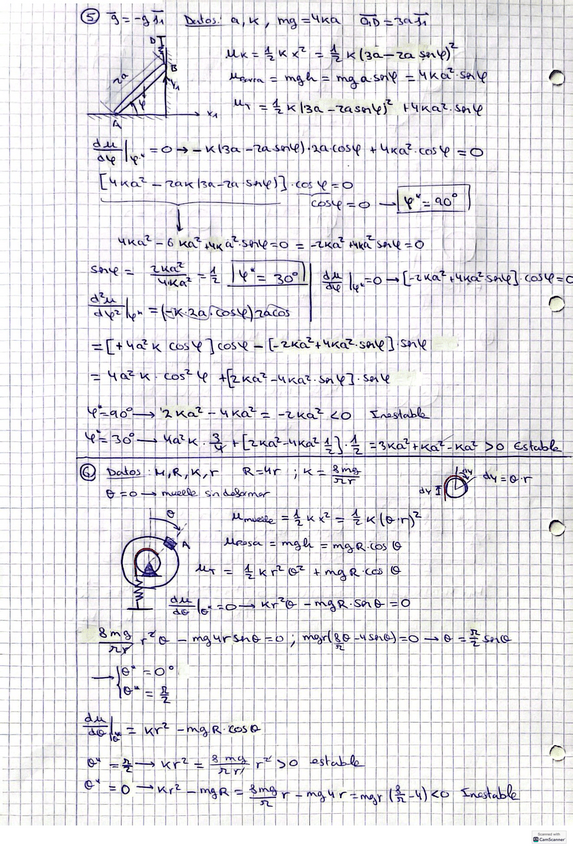 ⑤ g̅ = -g j̅₁ Datos: a, K, mg = 4Ka O₁D = 3a j̅₁
D
B
2a
φ
A
x₁
y₁
μ_K = ½ K x² = ½ K (3a - 2a senφ)²
μ_barra = mgh = mg a senφ = 4Ka² senφ
μ_T = ½ K (3a - 2a senφ)² + 4Ka² senφ
dμ/dφ|φ* = 0 → -K(3a - 2a senφ)·2a cosφ + 4Ka²·cosφ = 0
[4Ka² - 2aK(3a - 2a senφ)]·cosφ = 0
cosφ = 0 → φ* = 90°
4Ka² - 6Ka² + 4Ka²·senφ = 0 = -2Ka² + 4Ka² senφ = 0
senφ = 2Ka²/4Ka² = 1/2 φ* = 30° dμ/dφ|φ* = 0 → [-2Ka² + 4Ka² senφ]·cosφ = 0
d²μ/dφ²|φ* = (-K·2a·cosφ)2acos
= [+4a²K cosφ] cosφ - [-2Ka² + 4Ka²·senφ] senφ
= 4a²K·cos²φ + [2Ka² - 4Ka²·senφ]·senφ
φ* = 90° → 2Ka² - 4Ka² = -2Ka² < 0 Inestable
φ* = 30° → 4a²K·3/4 + [2Ka² - 4Ka² ½]·½ = 3Ka² + Ka² - Ka² > 0 Estable
⑥ Datos: M, R, K, r R = 4r ; K = 8mg/πr
θ = 0 → muelle sin deformar
dy
dy = θ·r
θ
A
μ_muelle = ½ K x² = ½ K (θ·r)²
μ_pesa = mgh = mgR·cosθ
μ_T = ½ K r² θ² + mgR cosθ
dμ/dθ|θ* = 0 → Kr²θ - mgR·senθ = 0
8mg/πr r²θ - mg4r senθ = 0 ; mgr(8θ/π - 4senθ) = 0 → θ = π/2 senθ
→ { θ* = 0°
θ* = π/2
dμ/dθ|θ* = Kr² - mgR·cosθ
θ* = π/2 → Kr² = 8mg/πr r² > 0 estable
θ* = 0 → Kr² - mgR = 8mg/π r - mg4r = mgr(8/π - 4) < 0 Inestable
Scanned with
CS CamScanner